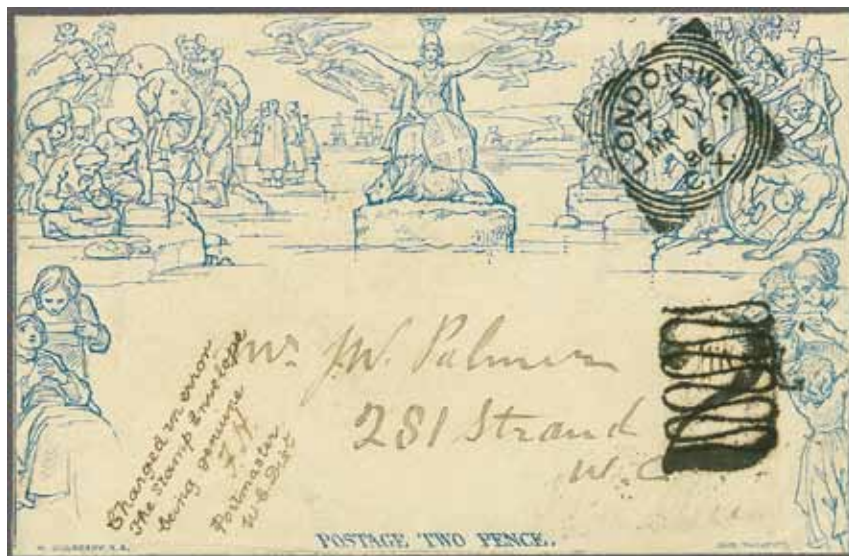 LONDON.W.C.
7 5
MR 11
86
C.X
Mr. J.W. Palmer
281 Strand
W.C
Charged in error
The Stamp Envelope
being genuine
F.H.
Postmaster
W.C. Dist
2
POSTAGE TWO PENCE.
W. MULREADY, R.A.
JOHN THOMPSON